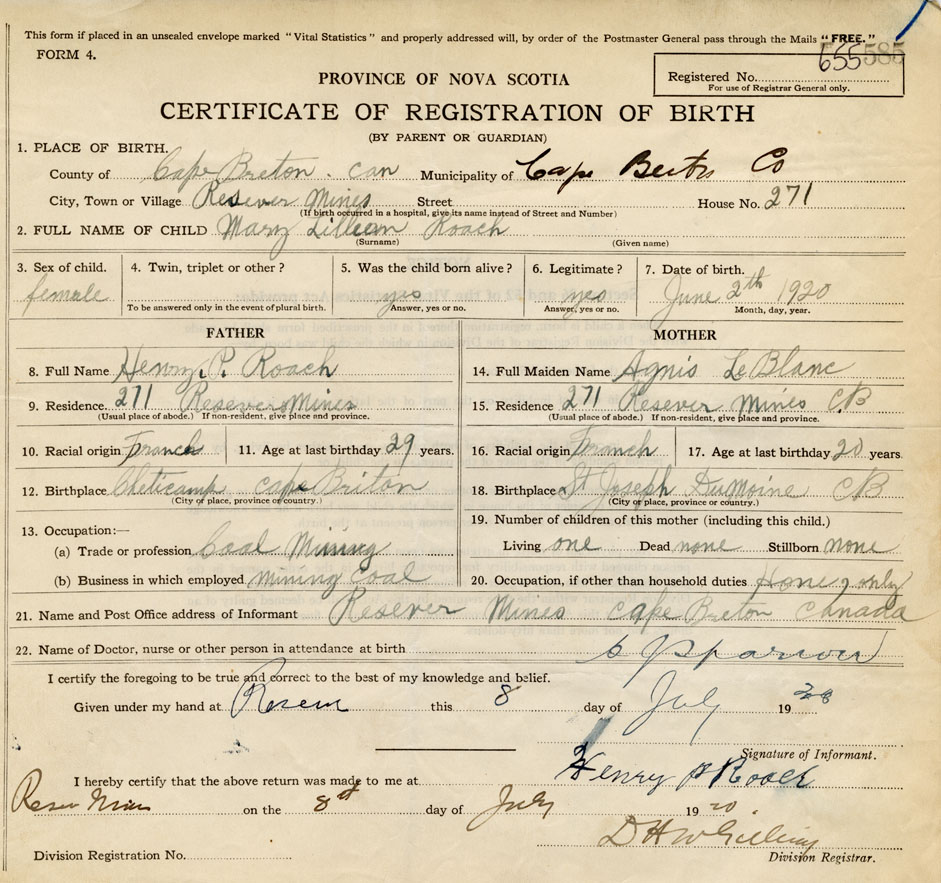 This form if placed in an unsealed envelope marked "Vital Statistics" and properly addressed will, by order of the Postmaster General pass through the Mails "FREE."
FORM 4.
655585
PROVINCE OF NOVA SCOTIA
Registered No.
For use of Registrar General only.
CERTIFICATE OF REGISTRATION OF BIRTH
(BY PARENT OR GUARDIAN)
1. PLACE OF BIRTH.
County of Cape Breton. can Municipality of Cape Co
City, Town or Village Resever Mines Street House No. 271
(If birth occurred in a hospital, give its name instead of Street and Number)
2. FULL NAME OF CHILD Mary Lilliean Roach
(Surname) (Given name)
3. Sex of child. 4. Twin, triplet or other? 5. Was the child born alive? 6. Legitimate? 7. Date of birth.
female yes yes June 2th 1920
To be answered only in the event of plural birth. Answer, yes or no. Answer, yes or no. Month, day, year.
FATHER MOTHER
8. Full Name Henry. P. Roach 14. Full Maiden Name Agnis LeBlanc
9. Residence. 271 Resever Mines 15. Residence 271 Resever Mines CB
(Usual place of abode.) If non-resident, give place and province. (Usual place of abode.) If non-resident, give place and province.
10. Racial origin Franch 11. Age at last birthday 29 years. 16. Racial origin Franch 17. Age at last birthday 20 years.
12. Birthplace Cheticamp cape Briton 18. Birthplace St Joseph DuMoine CB
(City or place, province or country.) (City or place, province or country.)
13. Occupation:— 19. Number of children of this mother (including this child.)
(a) Trade or profession Coal Mining Living one Dead none Stillborn none
(b) Business in which employed Mining Coal 20. Occupation, if other than household duties only
21. Name and Post Office address of Informant Resever Mines cape Breton Canada
22. Name of Doctor, nurse or other person in attendance at birth
I certify the foregoing to be true and correct to the best of my knowledge and belief.
Given under my hand at this 8 day of July 1920
Signature of Informant.
Henry P Roach
I hereby certify that the above return was made to me at
on the 8th day of July 1920
Division Registration No. Division Registrar.